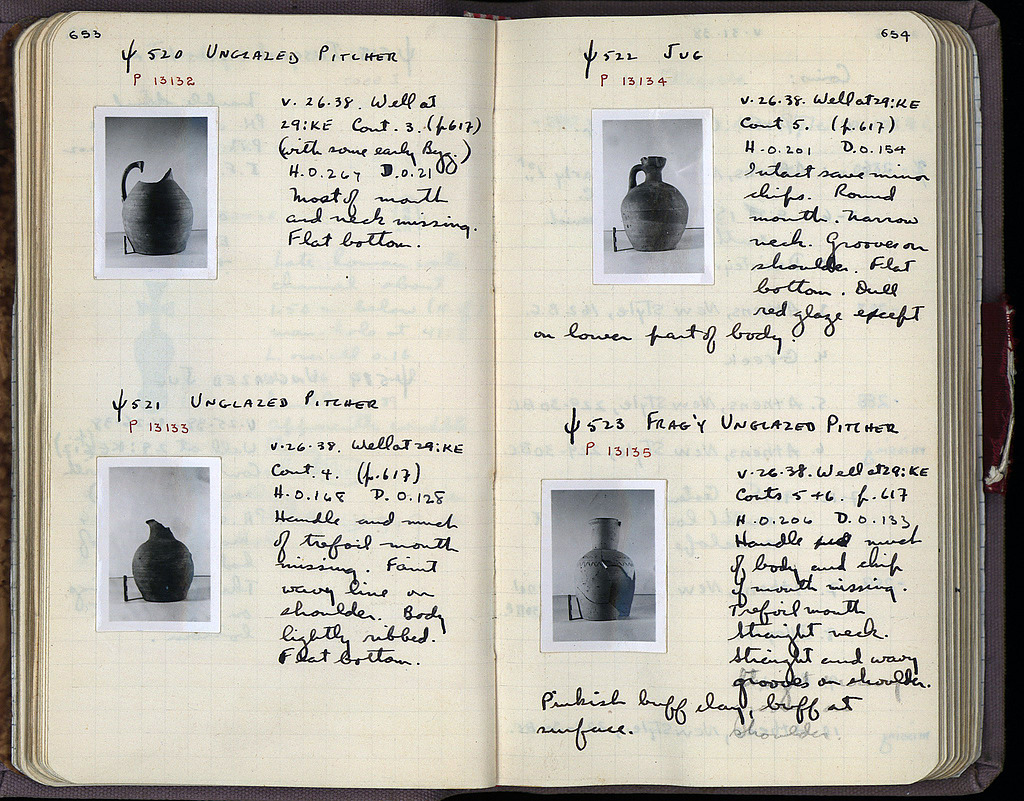 653
ψ 520 UNGLAZED PITCHER
P 13132
V. 26.38. Well at
29:KE Cont. 3. (p.617)
(with some early Byz.)
H. 0.267 D. 0.21
Most of mouth
and neck missing.
Flat bottom.
ψ 521 UNGLAZED PITCHER
P 13133
V.26.38. Well at 29:KE
Cont. 4. (p.617)
H. 0.168 D. 0.128
Handle and much
of trefoil mouth
missing. Faint
wavy line on
shoulder. Body
lightly ribbed.
Flat bottom.
654
ψ 522 JUG
P 13134
V.26.38. Well at 29:KE
Cont 5. (p.617)
H. 0.201 D. 0.154
Intact save minor
chips. Round
mouth. Narrow
neck. Grooves on
shoulder. Flat
bottom. Dull
red glaze except
on lower part of body.
ψ 523 FRAG'Y UNGLAZED PITCHER
P 13135
V.26.38. Well at 29:KE
Conts 5+6. p.617
H. 0.206 D. 0.133
Handle much
of body and chip
of mouth missing.
Trefoil mouth
Straight neck.
Straight and wavy
grooves on shoulder.
Pinkish buff clay, buff at
surface. shoulder.